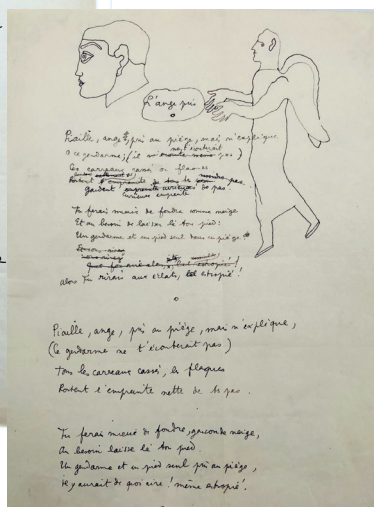 L'ange pris
Piaille, ange pris au piège, mais n'explique
à ce gendarme; (il ne t'écouterait pas)
Ces carreaux cassés ou flaques
Portent
gardent empreinte de pas.
Tu ferais mieux de fondre comme neige
Et au besoin de laisser là ton pied:
Un gendarme et un pied seul dans un piège!
alors Tu rirais aux éclats, estropié!
Piaille, ange, pris au piège, mais n'explique,
(Ce gendarme ne t'écouterait pas)
Tous les carreaux cassés, les flaques
Portent l'empreinte nette de tes pas.
Tu ferais mieux de fondre, neige,
Au besoin laisse là ton pied.
Un gendarme et un pied seul pris au piège,
il y aurait de quoi rire! même estropié.